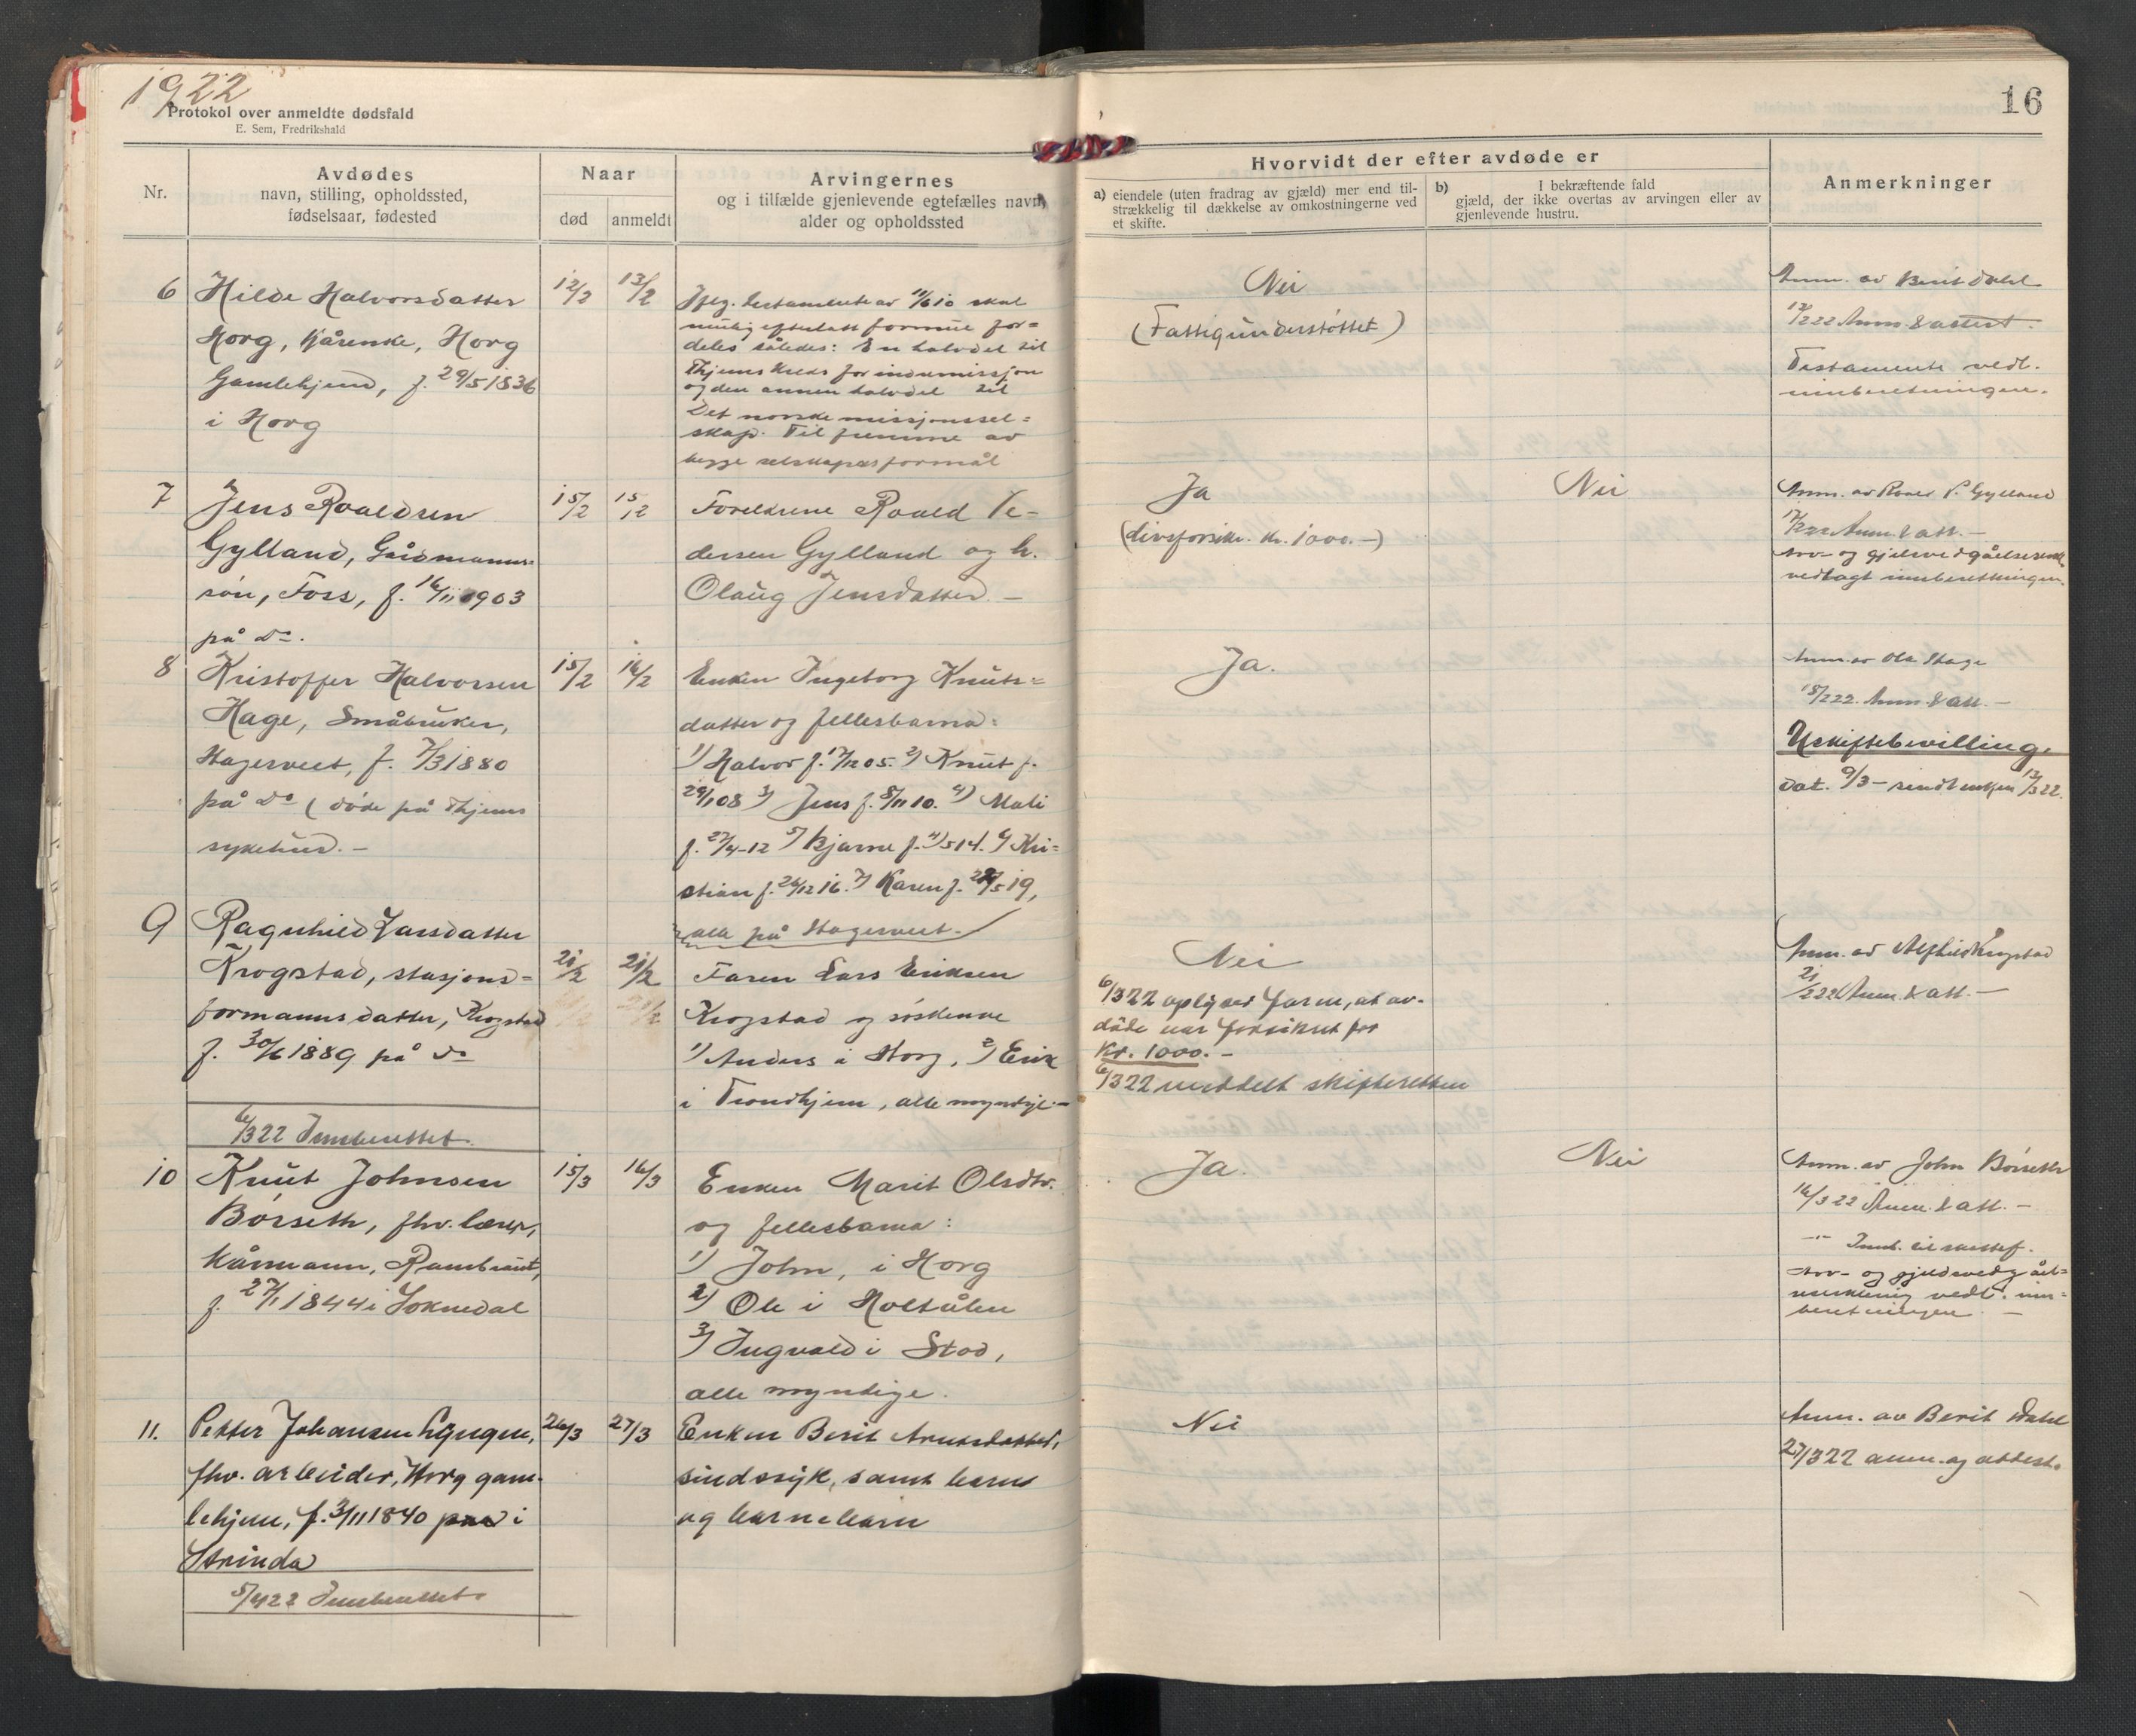 1922
Protokol over anmeldte dødsfald
E. Sem, Fredrikshald
16
Nr.
Avdødes
navn, stilling, opholdssted,
fødselsaar, fødested
Naar
død
anmeldt
Arvingernes
og i tilfælde gjenlevende egtefælles navn,
alder og opholdssted
Hvorvidt der efter avdøde er
a) eiendele (uten fradrag av gjæld) mer end til-
strækkelig til dækkelse av omkostningerne ved
et skifte.
b) I bekræftende fald
gjæld, der ikke overtas av arvingen eller av
gjenlevende hustru.
Anmerkninger
6
Hilde Halvorsdatter
Horg, Kårenke, Horg
Gamlehjem, f. 29/5 1836
i Horg
12/2
13/2
Iflg. testamente av 11/6 10 skal
mulig efterlatt formue for=
deles således: En halvdel til
Thjems kreds for indremissjon
og den annen halvdel til
Det norske missjonssel=
skap. Til fremme av
begge selskapers formål
Nei
(Fattigunderstøttet)
Anm. av Berit Dahl
13/2 22 Anm. & attest.
Testamente vedl.
innberetningen.
7
Jens Roaldsen
Gylland, Gårdmanns=
søn, Foss, f. 16/11 1903
på do.
15/2
15/2
Foreldrene Roald Pe-
dersen Gylland og h.
Olaug Jensdatter. —
Ja
(Livsforsikr. kr. 1000.-)
Nei
Anm. av Roald P. Gylland
17/2 22 Anm. & att. —
Arv- og gjelsvedgåelseserkl.
vedlagt innberetningen.
8
Kristoffer Halvorsen
Hage, Småbruker,
Hagerveet, f. 7/3 1880
på do (døde på Thjems
sykehus. —
15/2
16/2
Enken Ingeborg Knuts=
datter og fellesbarna:
1) Halvor f. 17/12 05. 2) Knut f.
29/1 08 3) Jens f. 8/11 10. 4) Mali
f. 27/4-12 5) Bjarne f. 4/5 14. 6) Kri=
stian f. 26/12 16. 7) Karen f. 28/5 19,
alle på Hagerveet.
Ja.
Anm. av Ola Hage
18/2 22. Anm. & att. —
Uskiftebevilling,
dat. 9/3 - sendt enken 13/3 22.
9
Ragnhild Larsdatter
Krogstad, stasjons=
formanns datter, Krogstad
f. 30/6 1889 på do
6/3 22 Innberettet.
21/2
21/2
Faren Lars Eriksen
Krogstad og søskenne
1) Anders i Horg, 2) Erik
i Trondhjem, alle myndige. —
Nei
6/3 22 oplyser faren, at av-
døde var forsikret for
Kr. 1000. —
6/3 22 meddelt skifteretten
Anm. av Alfhild Krogstad
21/2 22 Anm. & att. —
10
Knut Johnsen
Børseth, fhv. lærer,
Kårmann, Rambraut,
f. 27/1 1844 i Soknedal
15/3
16/3
Enken Marit Olsdtr.
og fellesbarna:
1) John, i Horg
2) Ole i Holtålen
3) Ingvald i Stod,
alle myndige.
Ja.
Nei
Anm. av John Børseth
16/3 22 Anm. & att. —
—"— Innb. til skattef.
Arv- og gjeldsvedgåel=
seserklæring vedl. inn=
beretningen —
11.
Petter Johansen Lyngen,
fhv. arbeider, Horg gam-
lehjem, f. 3/11 1840 i
Strinda
5/4 22 Innberettet.
26/3
27/3
Enken Berit Arntsdatter,
sindssyk, samt barn
og barnebarn
Nei
Anm. av Berit Dahl
27/3 22 anm. og attest.